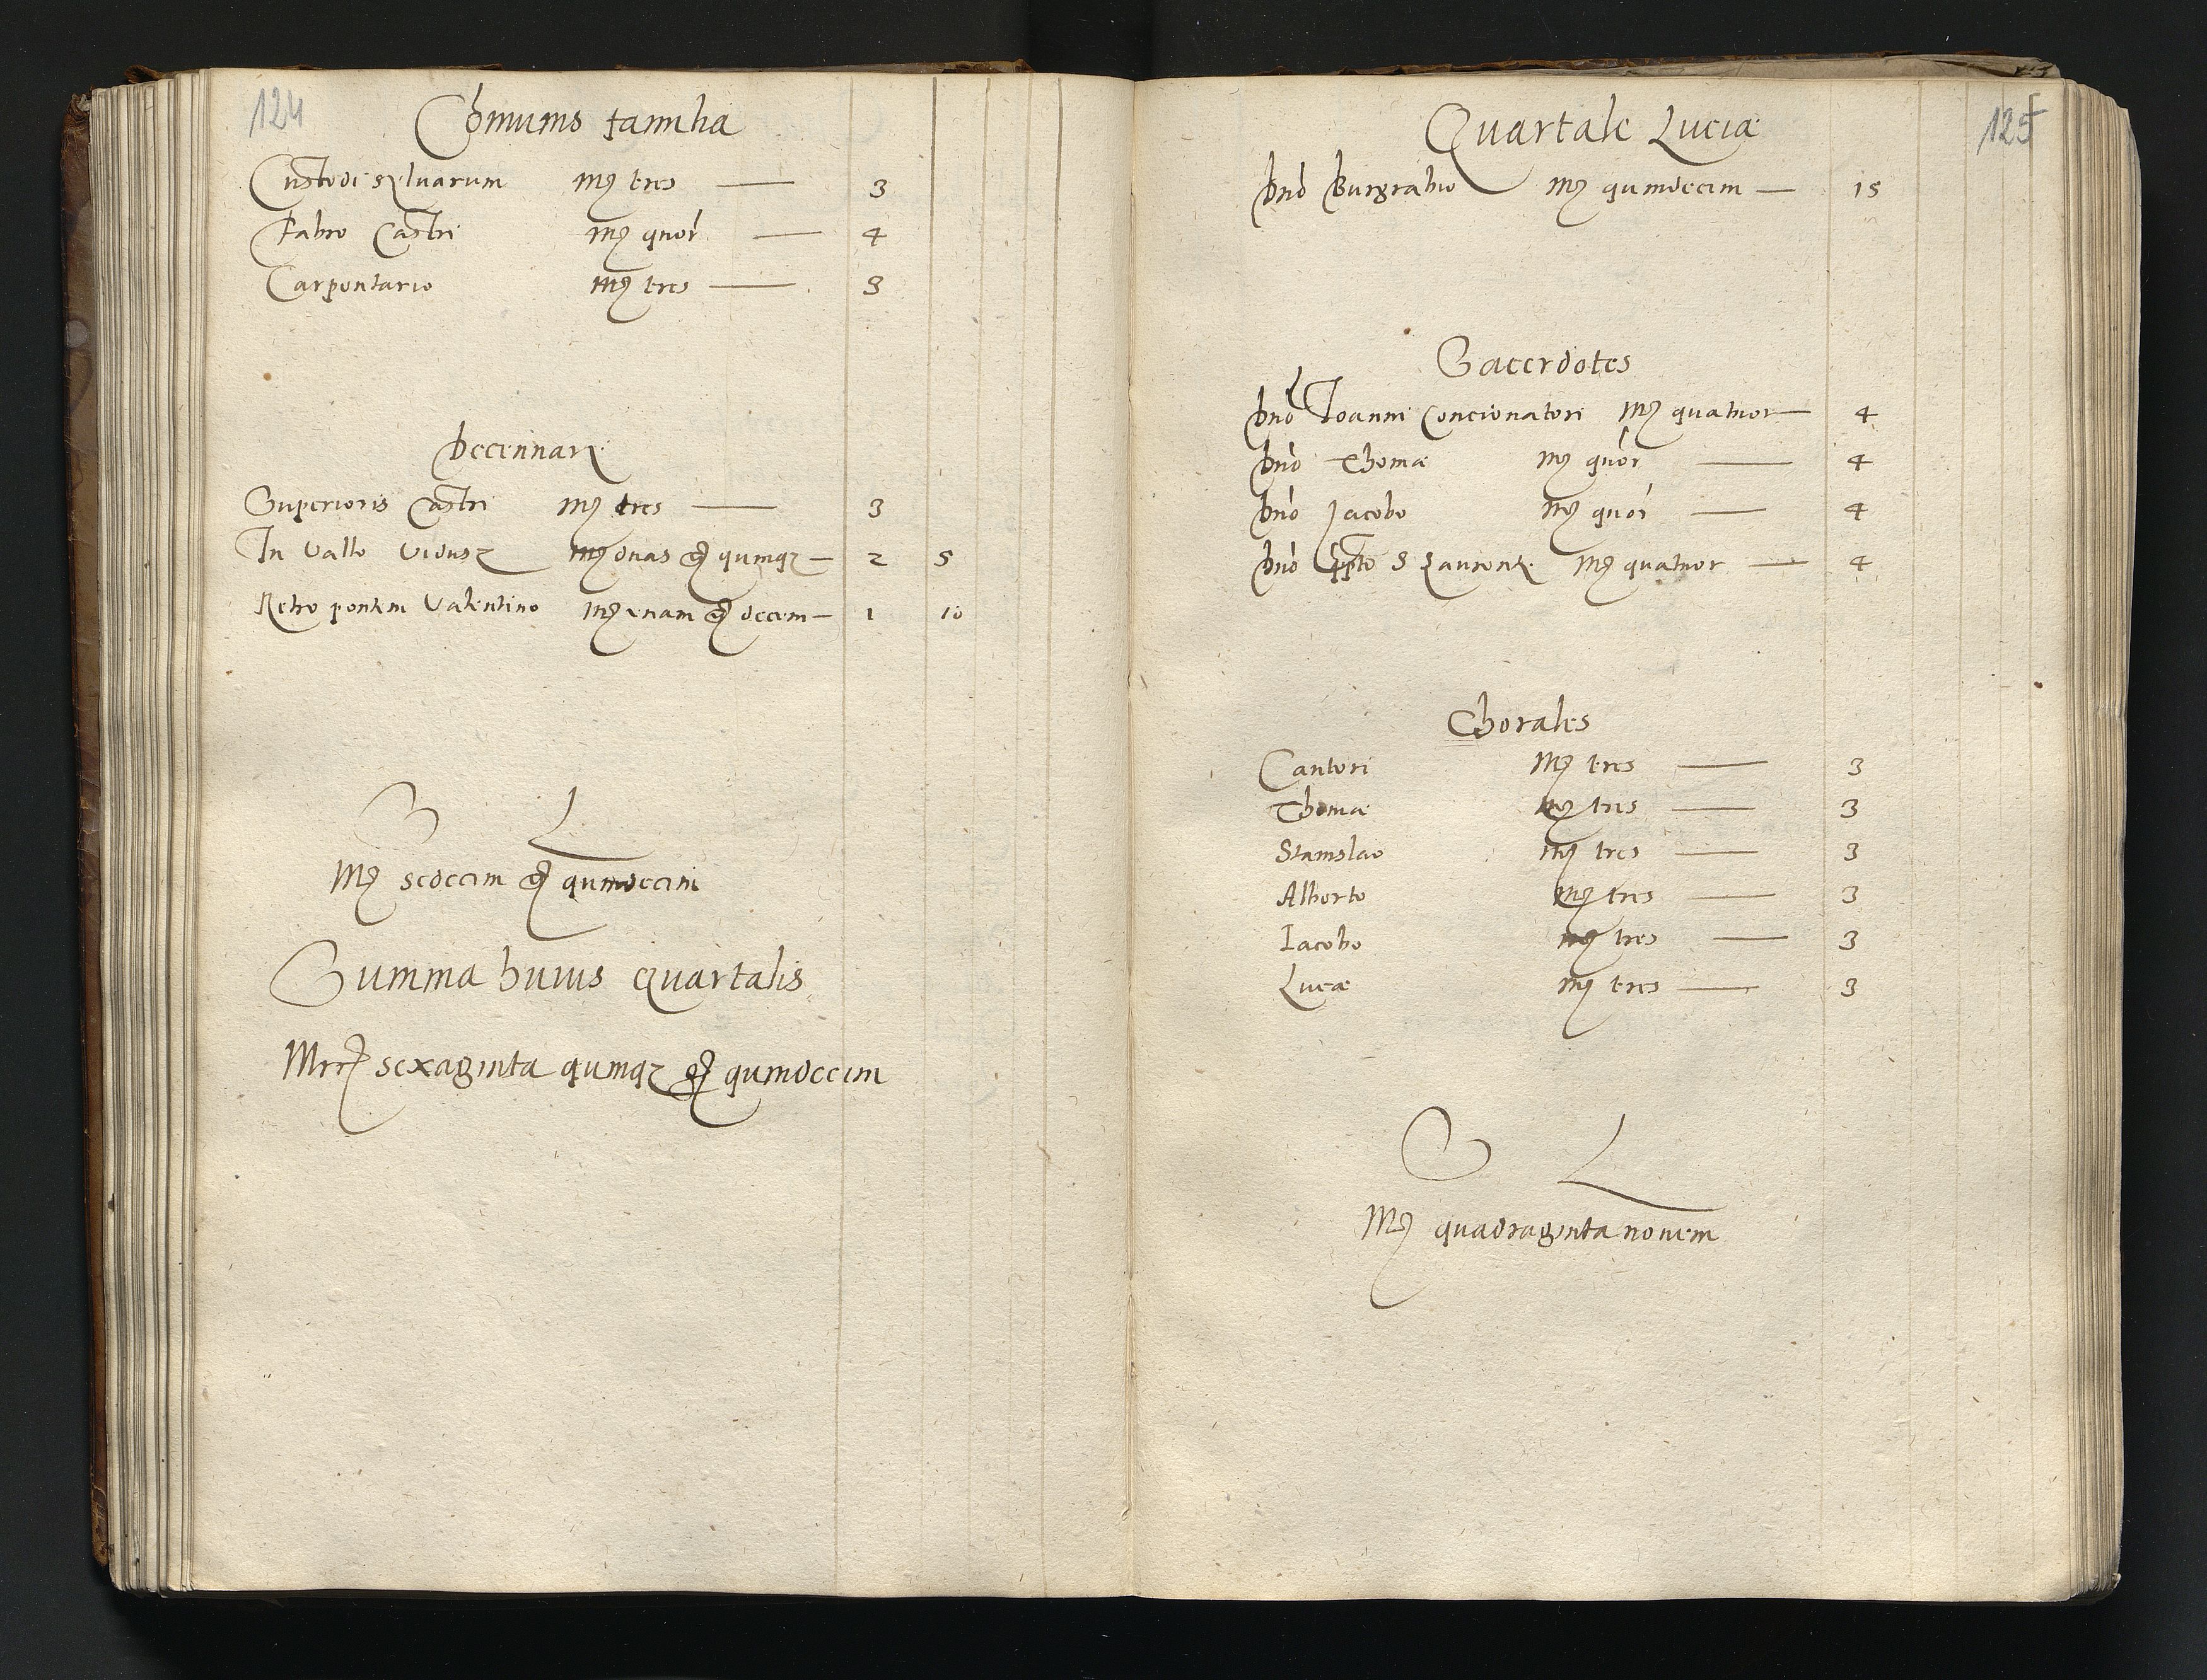 124
Comunis familia
Custodi sylvarum mɼ tres — 3
Fabro Castri mɼ quor — 4
Carpentario mɼ tres — 3
Decennarii
Superioris Castri mɼ tres — 3
In Vallo Vidusz mɼ duas gɼ quinqɜ — 2 5
Retro pontem Valentino mɼ unam gɼ decem — 1 10
S L
Mɼ sedecim gɼ quindecim
Summa huius Quartalis
Mrc sexaginta quinqɜ gɼ quindecim
125
Quartale Luciæ
Dno Burgrabio mɼ quindecim — 15
Sacerdotes
Dno Joanni Concionatori mɼ quatuor — 4
Dno Thomæ mɼ quor — 4
Dno Jacobo mɼ quor — 4
Dno ppto S Laurentii mɼ quatuor — 4
Chorales
Cantori mɼ tres — 3
Thomæ mɼ tres — 3
Stanislao mɼ tres — 3
Alberto mɼ tres — 3
Iacobo mɼ tres — 3
Lucæ mɼ tres — 3
S L
Mɼ quadraginta novem